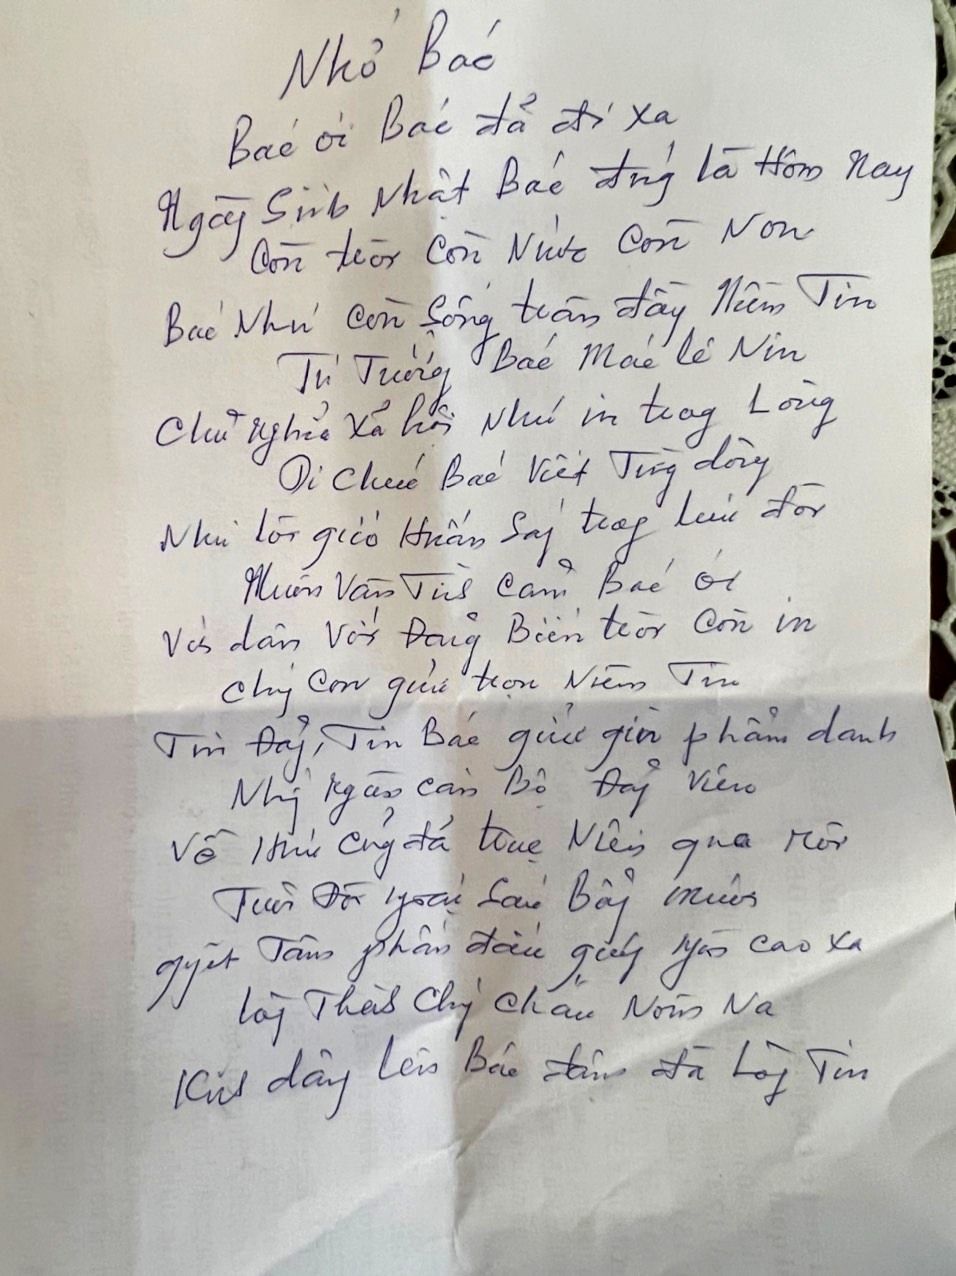 Nhớ Bác
Bác ơi Bác đã đi xa
Ngày Sinh Nhật Bác đúng là Hôm Nay
Còn trời Còn Nước Còn Non
Bác Như Còn Sống tràn đầy Niềm Tin
Tư Tưởng Bác Mác Lê Nin
Chủ Nghĩa Xã hội Như in trong Lòng
Di Chúc Bác Viết Từng dòng
Như lời gió Huấn Sáng trong
Muôn Vàn Tình Cảm Bác ơi
Với dân Với Đảng Biển trời Còn in
Chúng Con giữ trọn Niềm Tin
Tin Đảng, Tin Bác giữ gìn phẩm danh
Những Ngàn cán Bộ Đảng Viên
Về Hưu Cũng đã Niên qua rồi
Tuổi Đời ngoài Sáu Bảy mươi
quyết Tâm phấn đấu cao xa
Lòng Thành Chúng Cháu Nôm Na
Kính dâng Lên Bác đậm đà Lòng Tin